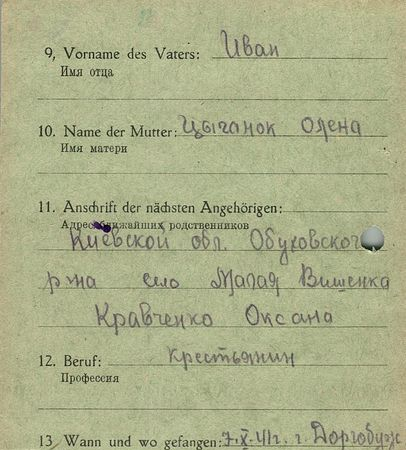 9, Vorname des Vaters: Иван
Имя отца
10. Name der Mutter: Цыганок Олена
Имя матери
11. Anschrift der nächsten Angehörigen:
Адрес ближайших родственников
Киевской обл. Обуховского
р-на село Малая Вишенка
Кравченко Оксана
12. Beruf: крестьянин
Профессия
13. Wann und wo gefangen: 7.X.41г. г. Дорогобуж